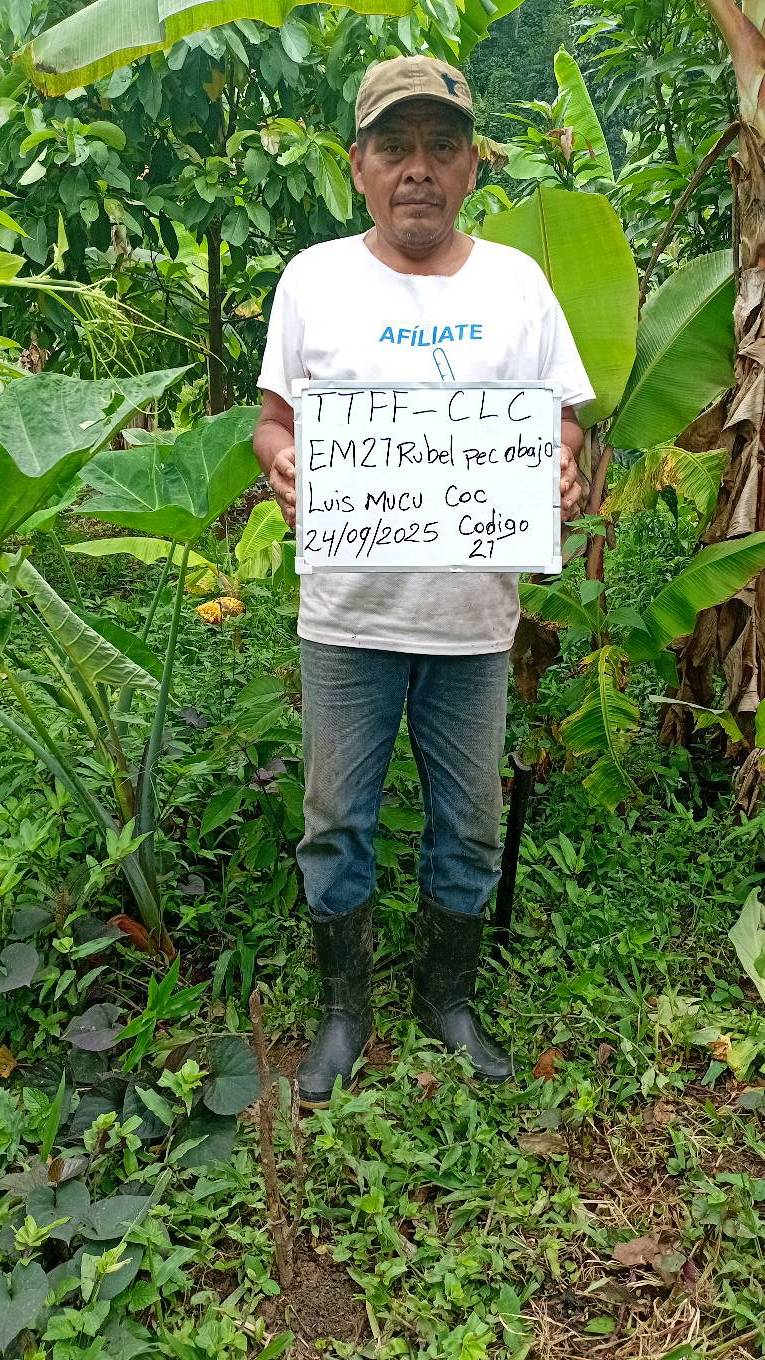 AFÍLIATE
TTFF-CLC
EM27 Rubel pec abajo
Luis Mucu Coc
24/09/2025 Codigo
27